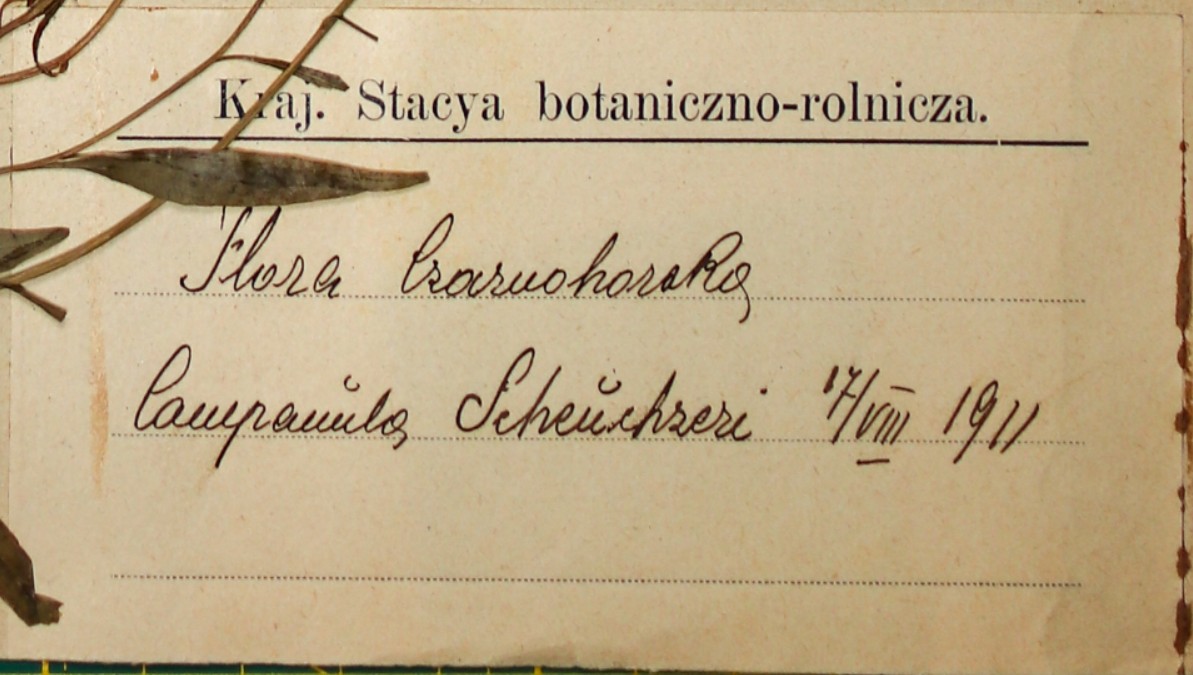 Kraj. Stacya botaniczno-rolnicza.
Flora Czarnohorska
Campanula Scheuchzeri 17/VIII 1911